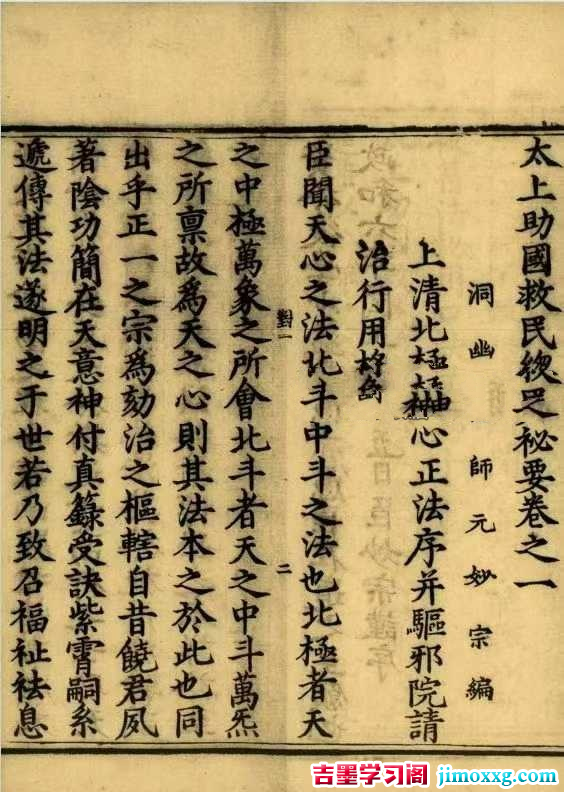 太上助國救民緫眞秘要卷之一
洞幽 師元妙宗編
上清北極天心正法序并驅邪院請
治行用
臣聞天心之法北斗中斗之法也北極者天
對一 二
之中極萬象之所會北斗者天之中斗萬炁
之所禀故爲天之心則其法本之於此也同
出乎正一之宗爲劾治之樞轄自昔饒君夙
著陰功簡在天意神付真籙受訣紫霄嗣系
遞傳其法遂明之于世若乃致召福祉祛息
吉墨学习阁 jimoxxg.com